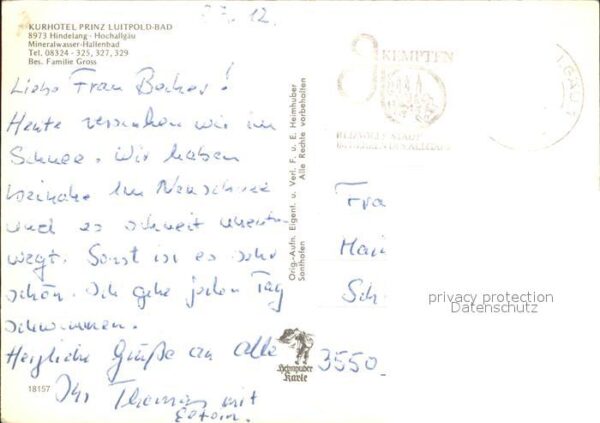 27.12.
KURHOTEL PRINZ LUITPOLD-BAD
8973 Hindelang · Hochallgäu
Mineralwasser-Hallenbad
Tel. 08324 - 325, 327, 329
Bes. Familie Gross
Liebe Frau Becker!
Heute versinken wir im
Schnee. Wir haben
beinahe 1m Neuschnee
und es schneit unent-
wegt. Sonst ist es sehr
schön. Ich gehe jeden Tag
schwimmen.
Herzliche Grüße an Alle
Ihr Thomas mit
Eltern.
18157
Orig.-Aufn. Eigent. u. Verl. F. u. E. Heimhuber
Alle Rechte vorbehalten
Sonthofen
Heimhuber
Karte
KEMPTEN
Fra
Hai
Sch
3550
privacy protection
Datenschutz